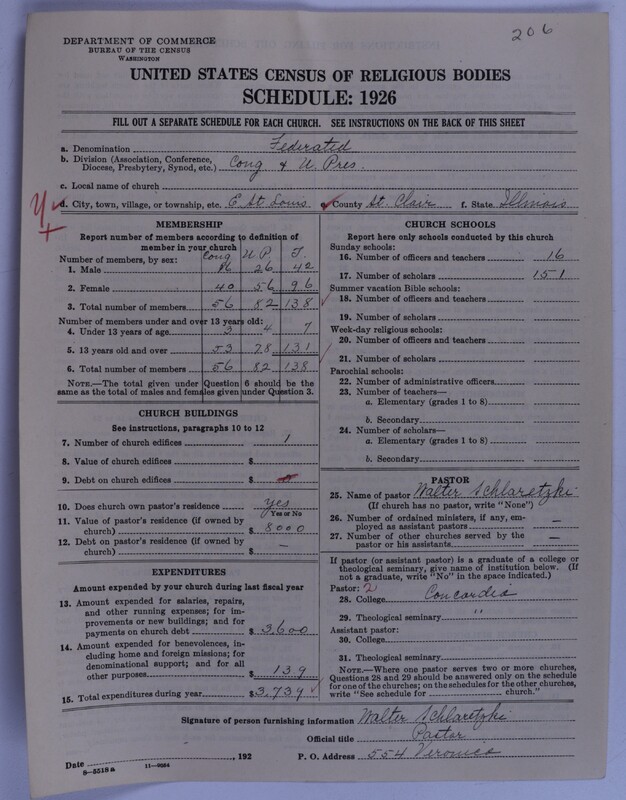 206
DEPARTMENT OF COMMERCE
BUREAU OF THE CENSUS
WASHINGTON
UNITED STATES CENSUS OF RELIGIOUS BODIES
SCHEDULE: 1926
FILL OUT A SEPARATE SCHEDULE FOR EACH CHURCH. SEE INSTRUCTIONS ON THE BACK OF THIS SHEET
a. Denomination Federated
b. Division (Association, Conference,
Diocese, Presbytery, Synod, etc.) Cong & U. Pres.
c. Local name of church
d. City, town, village, or township, etc. E. St. Louis e. County St. Clair f. State Illinois
MEMBERSHIP
Report number of members according to definition of
member in your church
Number of members, by sex: Cong U.P. T.
1. Male 16 26 42
2. Female 40 56 96
3. Total number of members 56 82 138
Number of members under and over 13 years old:
4. Under 13 years of age 3 4 7
5. 13 years old and over 53 78 131
6. Total number of members 56 82 138
NOTE.—The total given under Question 6 should be the
same as the total of males and females given under Question 3.
CHURCH BUILDINGS
See instructions, paragraphs 10 to 12
7. Number of church edifices 1
8. Value of church edifices $
9. Debt on church edifices $
10. Does church own pastor's residence yes
Yes or No
11. Value of pastor's residence (if owned by
church) $ 8000
12. Debt on pastor's residence (if owned by
church) $ —
EXPENDITURES
Amount expended by your church during last fiscal year
13. Amount expended for salaries, repairs,
and other running expenses; for im-
provements or new buildings; and for
payments on church debt $ 3,600
14. Amount expended for benevolences, in-
cluding home and foreign missions; for
denominational support; and for all
other purposes $ 139
15. Total expenditures during year $ 3,739
CHURCH SCHOOLS
Report here only schools conducted by this church
Sunday schools:
16. Number of officers and teachers 16
17. Number of scholars 151
Summer vacation Bible schools:
18. Number of officers and teachers
19. Number of scholars
Week-day religious schools:
20. Number of officers and teachers
21. Number of scholars
Parochial schools:
22. Number of administrative officers
23. Number of teachers—
a. Elementary (grades 1 to 8)
b. Secondary
24. Number of scholars—
a. Elementary (grades 1 to 8)
b. Secondary
PASTOR
25. Name of pastor Walter Schlaretzki
(If church has no pastor, write "None")
26. Number of ordained ministers, if any, em-
ployed as assistant pastors —
27. Number of other churches served by the
pastor or his assistants —
If pastor (or assistant pastor) is a graduate of a college or
theological seminary, give name of institution below. (If
not a graduate, write "No" in the space indicated.)
Pastor: 2
28. College Concordia
29. Theological seminary "
Assistant pastor:
30. College
31. Theological seminary
NOTE.—Where one pastor serves two or more churches,
Questions 28 and 29 should be answered only on the schedule
for one of the churches; on the schedules for the other churches,
write "See schedule for church."
Signature of person furnishing information Walter Schlaretzki
Official title Pastor
Date , 192 P. O. Address 554 Veronica
8—5518 a 11—9684